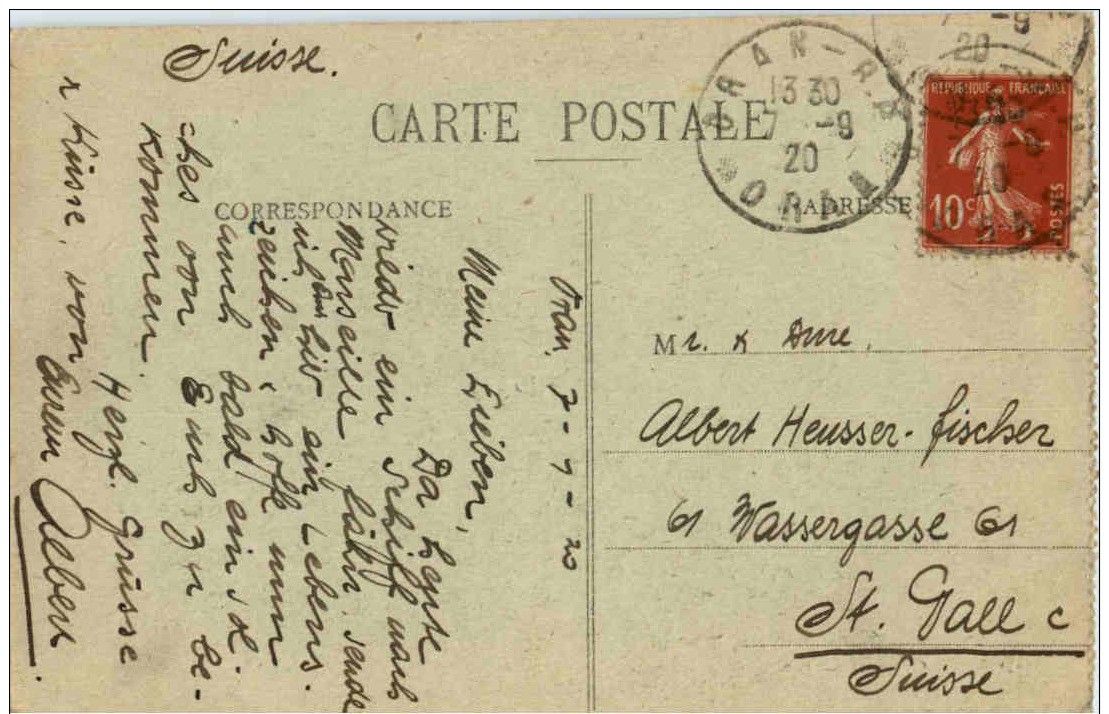 Suisse.
CARTE POSTALE
CORRESPONDANCE
ADRESSE
ORAN-R.P.
13 30
7 -9
20
ORAN
-9
20
REPUBLIQUE FRANÇAISE
10 c
POSTES
Oran. 7-9-20
Meine Lieben,
Da heute
wieder ein Schiff nach
Marseille fährt sende
ich Euch hier ein Lebens.
zeichen & hoffe nun
auch bald ein sol.
-ches von Euch zu be-
kommen.
Herzl. Grüsse
& Küsse, von
Eurem Albert.
Mr. & Dme.
Albert Heusser-Fischer
61 Wassergasse 61
St. Gall c
Suisse